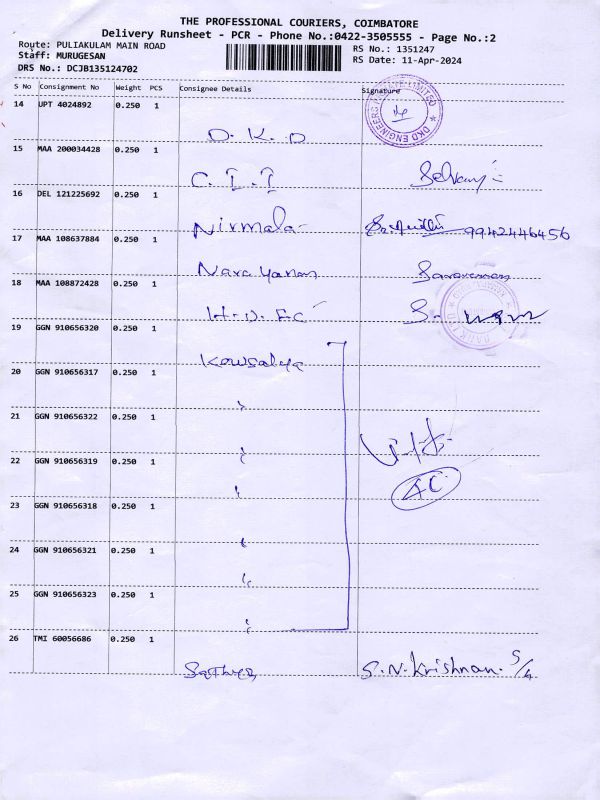 THE PROFESSIONAL COURIERS, COIMBATORE
Delivery Runsheet - PCR - Phone No.:0422-3505555 - Page No.:2
Route: PULIAKULAM MAIN ROAD
RS No.: 1351247
Staff: MURUGESAN
RS Date: 11-Apr-2024
DRS No.: DCJB135124702
S No Consignment No Weight PCS Consignee Details Signature
14 UPT 4024892 0.250 1
D.K.D
15 MAA 200034428 0.250 1
C.I.I Selvany
16 DEL 121225692 0.250 1
Nirmala 9942446456
17 MAA 108637884 0.250 1
Narayanan Saravanan
18 MAA 108872428 0.250 1
H.D.F.C S.
19 GGN 910656320 0.250 1
Kowsalya
20 GGN 910656317 0.250 1
"
21 GGN 910656322 0.250 1
"
22 GGN 910656319 0.250 1
"
AC
23 GGN 910656318 0.250 1
"
24 GGN 910656321 0.250 1
"
25 GGN 910656323 0.250 1
"
26 TMI 60056686 0.250 1
Sathya S.N.Krishnan. 5/4